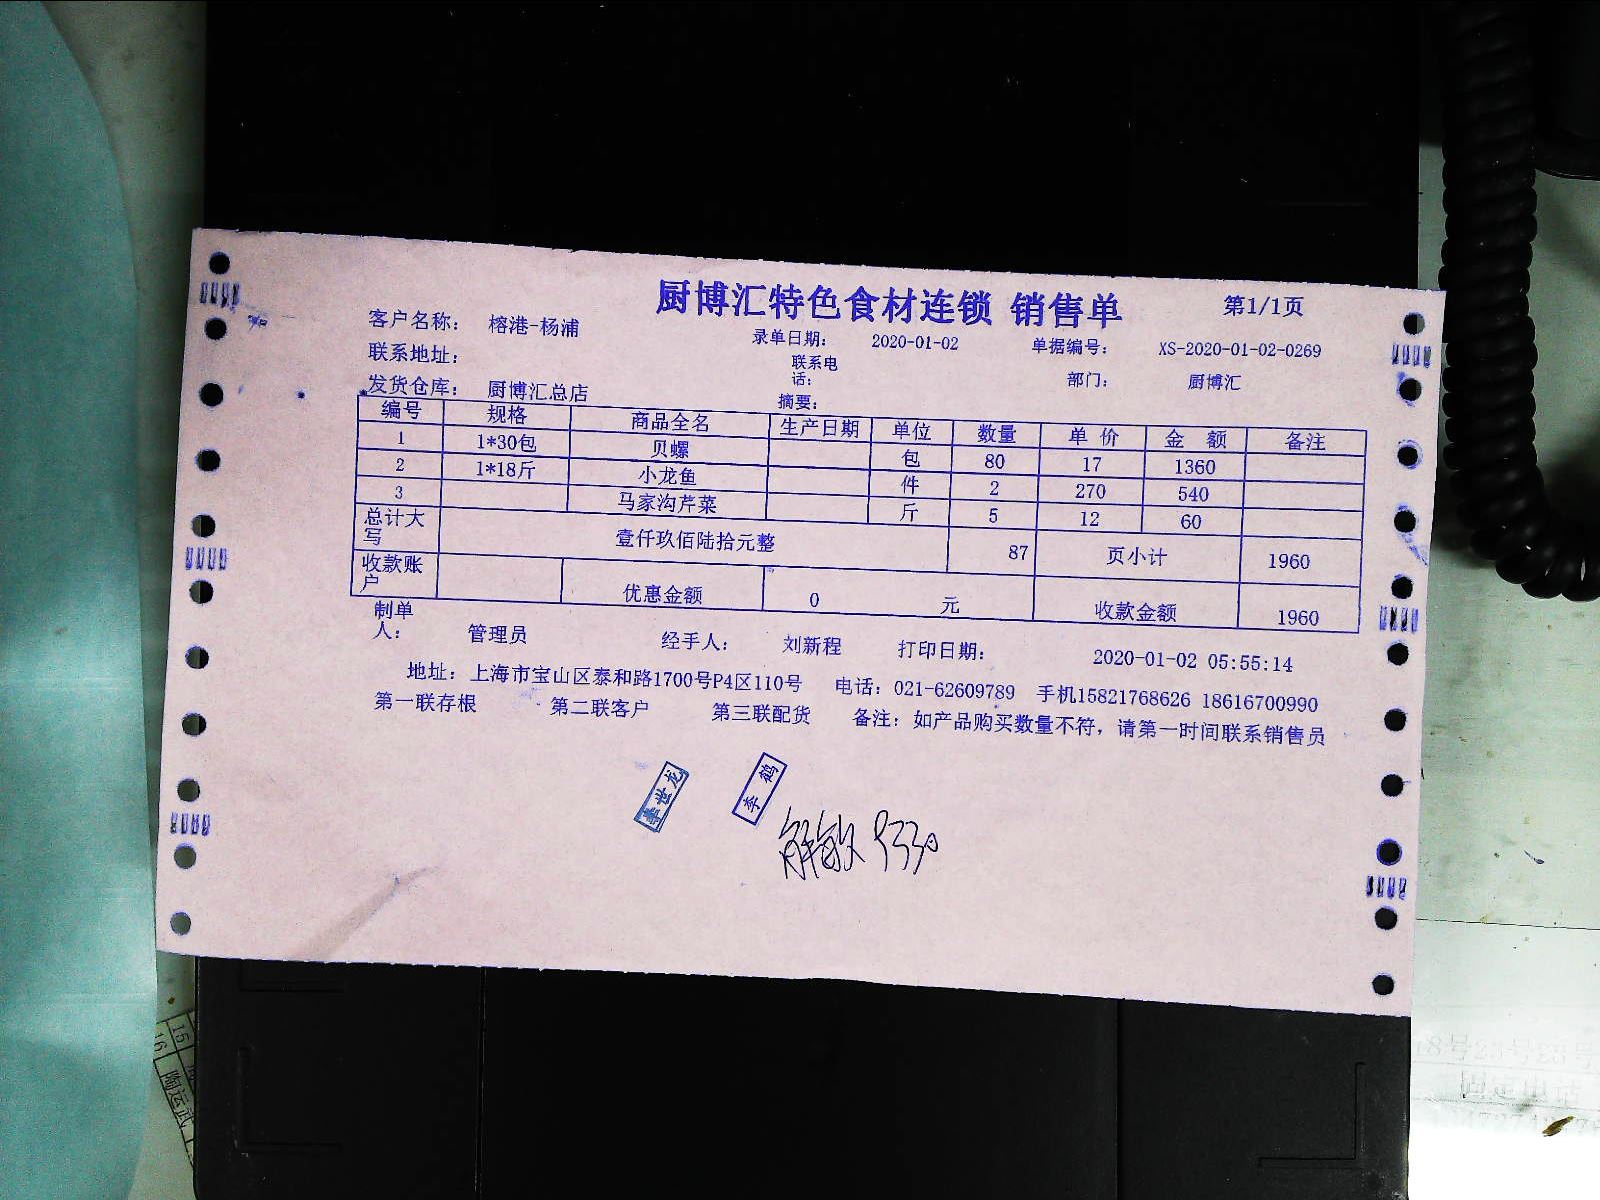 厨博汇特色食材连锁 销售单 第1/1页
客户名称： 榕港-杨浦 录单日期： 2020-01-02 单据编号： XS-2020-01-02-0269
联系地址： 联系电话： 部门： 厨博汇
发货仓库： 厨博汇总店 摘要：
编号 规格 商品全名 生产日期 单位 数量 单 价 金 额 备注
1 1*30包 贝螺 包 80 17 1360
2 1*18斤 小龙鱼 件 2 270 540
3 马家沟芹菜 斤 5 12 60
总计大写 壹仟玖佰陆拾元整 87 页小计 1960
收款账户 优惠金额 0 元 收款金额 1960
制单人： 管理员 经手人： 刘新程 打印日期： 2020-01-02 05:55:14
地址：上海市宝山区泰和路1700号P4区110号 电话：021-62609789 手机15821768626 18616700990
第一联存根 第二联客户 第三联配货 备注：如产品购买数量不符，请第一时间联系销售员
李世龙
李鹤
解敏
15
16
陶运武